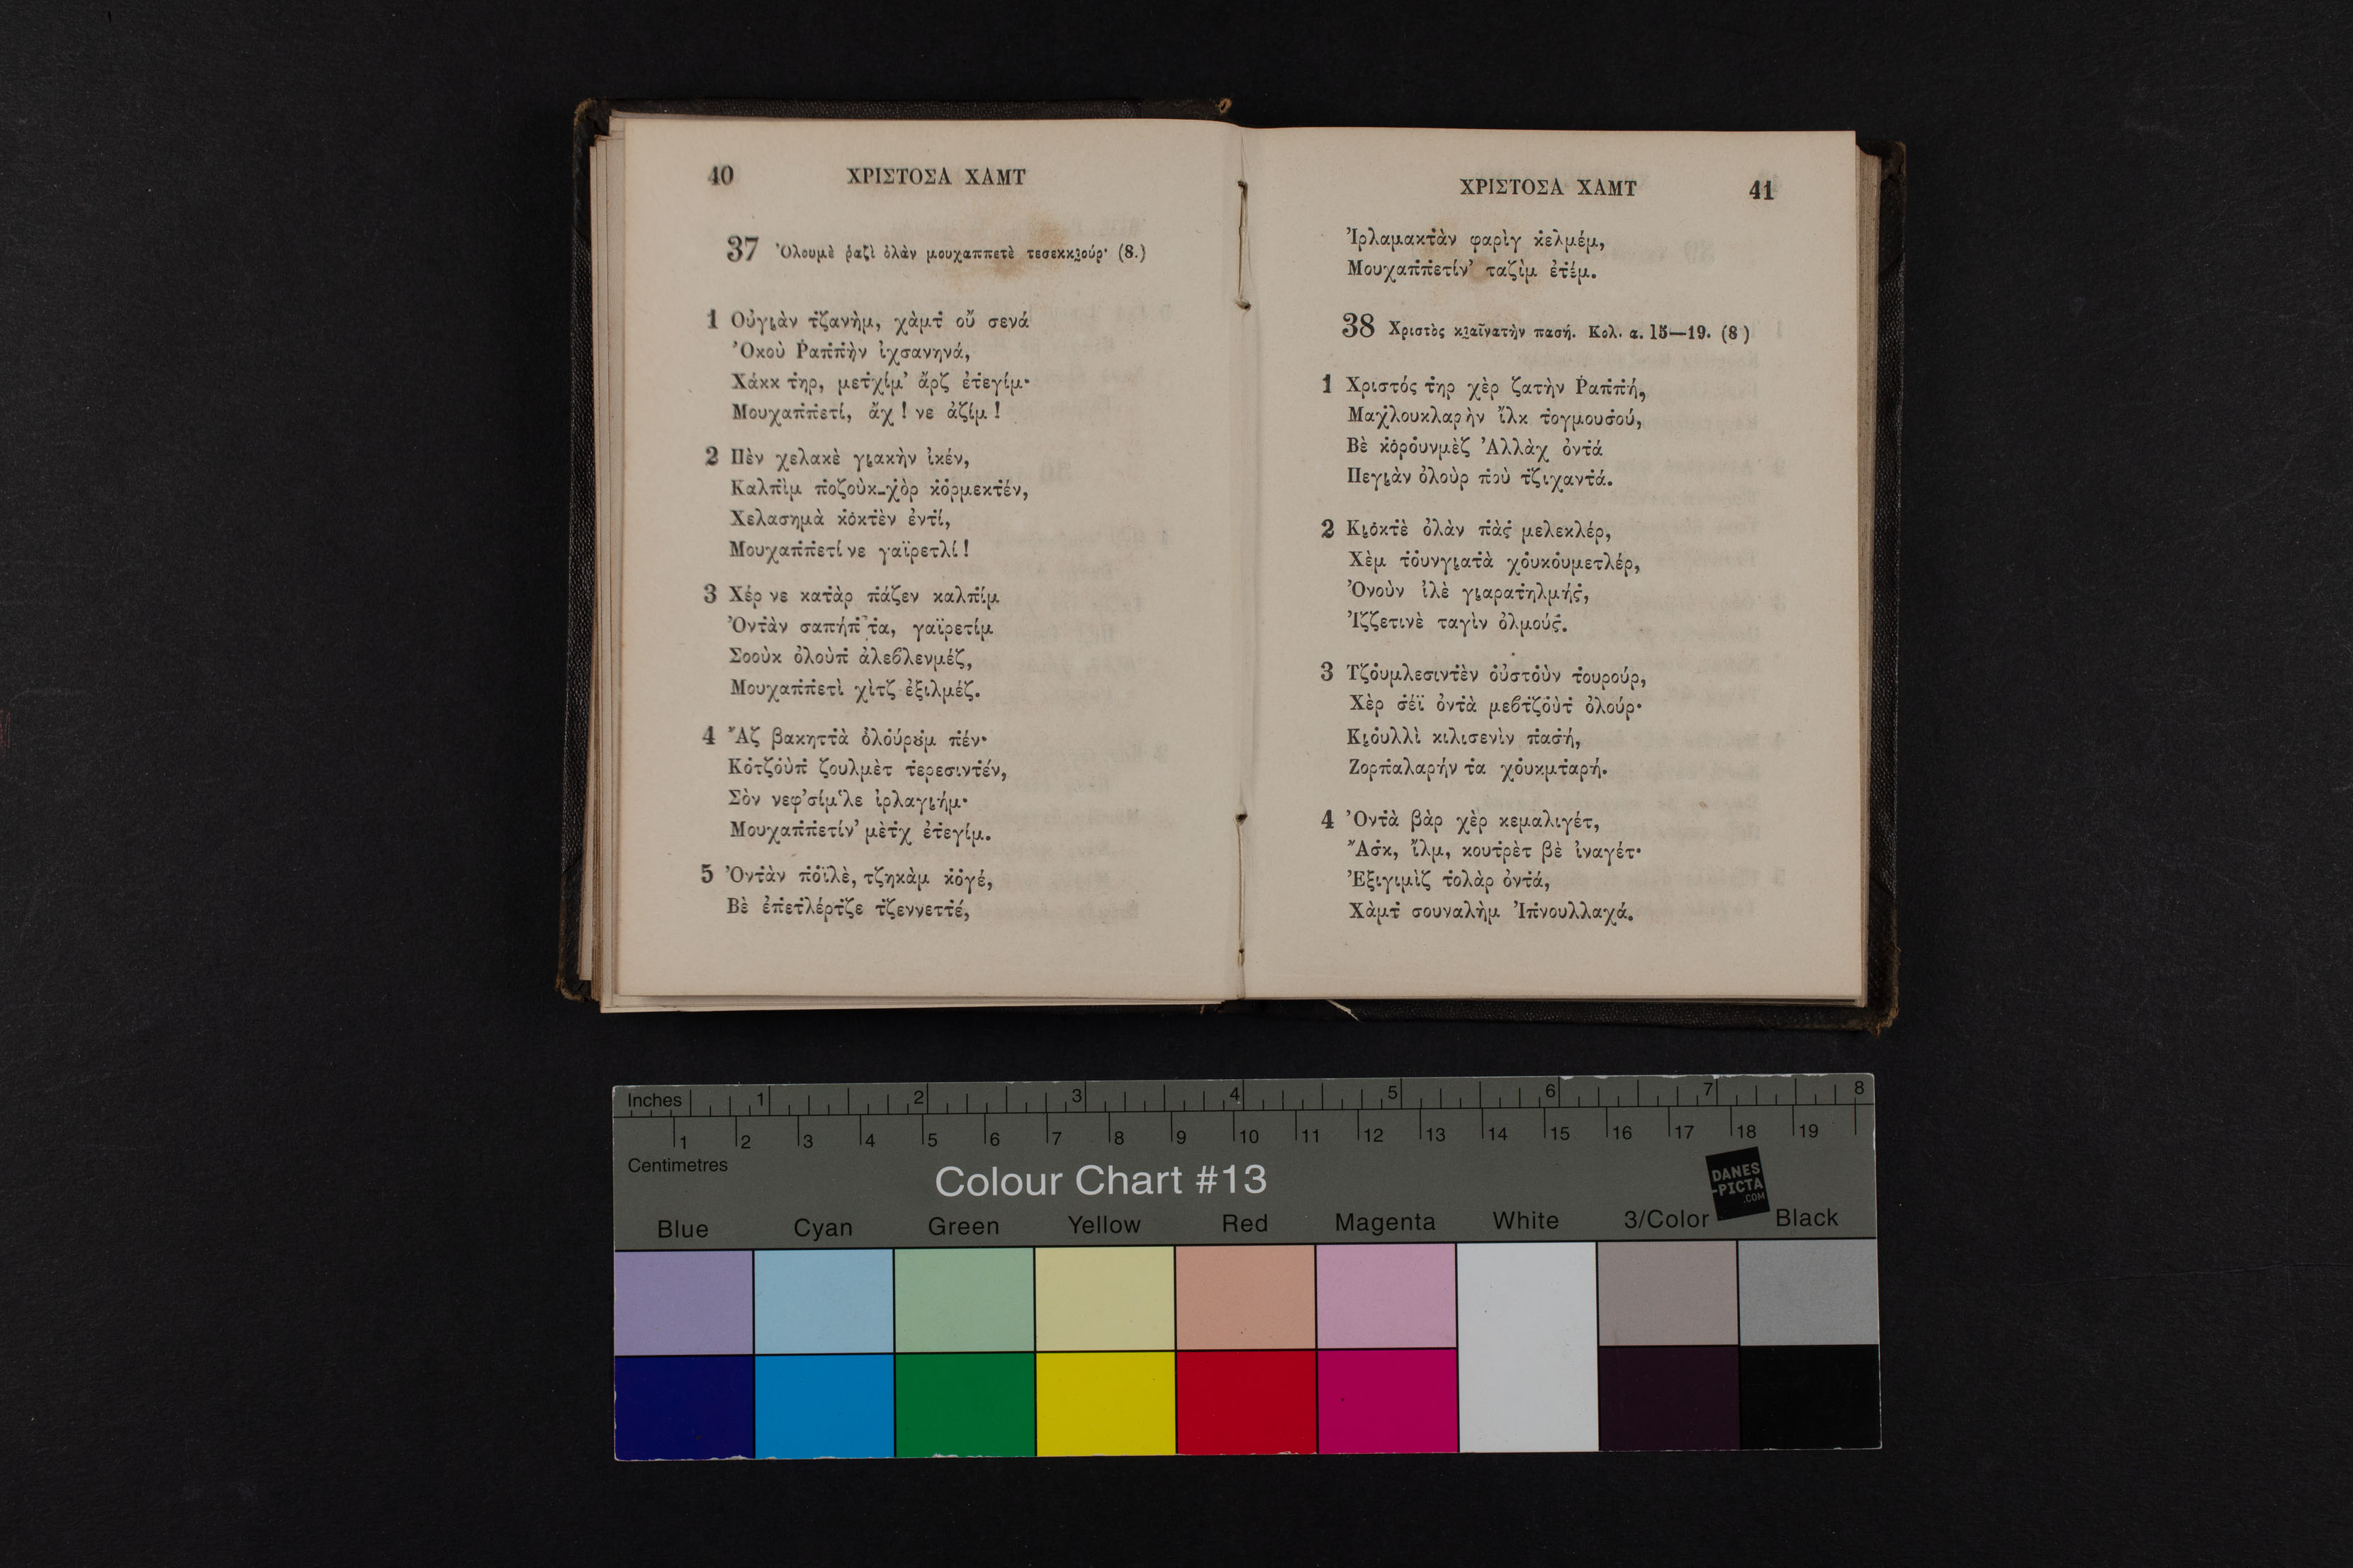 40 ΧΡΙΣΤΟΣΑ ΧΑΜΤ
37 Ὀλουμὲ ῥαζὶ ὀλὰν μουχαππετὲ τεσεκκι̯ούρ· (8.)
1 Οὐγι̯ὰν τ̇ζανὴμ, χὰμτ̇ οὔ σενά
Ὀκοὺ Ῥαπ̇π̇ὴν ἰχσανηνά,
Χάκκ τ̇ηρ, μετ̇χίμ' ἄρζ ἐτ̇εγίμ·
Μουχαπ̇π̇ετί, ἄχ! νε ἀζίμ!
2 Πὲν χελακὲ γι̯ακὴν ἰκέν,
Καλπ̇ὶμ π̇οζοὺκ-χὸρ κ̇ὀρμεκτ̇έν,
Χελασημὰ κ̇ὀκτ̇ὲν ἐντ̇ί,
Μουχαπ̇π̇ετί νε γαϊρετλί!
3 Χέρ νε κατ̇ὰρ π̇άζεν καλπ̇ίμ
Ὀντ̇ὰν σαπήπ̇ τ̇α, γαϊρετίμ
Σοοὺκ ὀλοὺπ̇ ἀλεβλενμέζ,
Μουχαπ̇π̇ετὶ χὶτζ ἐξιλμέζ.
4 Ἄζ βακηττὰ ὀλούρȣμ π̇έν·
Κὀτζοὺπ̇ ζουλμὲτ τ̇ερεσιντ̇έν,
Σὸν νεφ'σίμ'λε ἰρλαγι̯ήμ·
Μουχαπ̇π̇ετίν' μὲτ̇χ ἐτ̇εγίμ.
5 Ὀντ̇ὰν π̇ὀϊλὲ, τζηκὰμ κ̇ὀγέ,
Βὲ ἐπ̇ετ̇λέρτ̇ζε τ̇ζεννεττέ,
ΧΡΙΣΤΟΣΑ ΧΑΜΤ 41
Ἰρλαμακτ̇ὰν φαρὶγ κ̇ελμέμ,
Μουχαπ̇π̇ετίν' ταζὶμ ἐτ̇έμ.
38 Χριστὸς κι̯αῖνατὴν πασή. Κολ. α. 15—19. (8)
1 Χριστός τ̇ηρ χὲρ ζατὴν Ῥαπ̇π̇ή,
Μαχ̇λουκλαρὴν ἴλκ τ̇ογμουσ̇ού,
Βὲ κ̇ὀροὐνμὲζ Ἀλλὰχ ὀντ̇ά
Πεγι̯ὰν ὀλοὺρ π̇οὺ τ̇ζιχαντ̇ά.
2 Κι̯ὀκτ̇ὲ ὀλὰν π̇ὰς̇ μελεκλέρ,
Χὲμ τ̇οὐνγι̯ατ̇ὰ χοὐκοὐμετλέρ,
Ὀνοὺν ἰλὲ γι̯αρατ̇ηλμής̇,
Ἰζζετινὲ ταγὶν ὀλμούς̇.
3 Τζοὐμλεσιντ̇ὲν οὐστοὺν τ̇ουρούρ,
Χὲρ σ̇έϊ ὀντ̇ὰ μεβτ̇ζοὺτ̇ ὀλούρ·
Κι̯οὐλλὶ κιλισενὶν π̇ασ̇ή,
Ζορπ̇αλαρήν τ̇α χοὐκμτ̇αρή.
4 Ὀντ̇ὰ βὰρ χὲρ κεμαλιγέτ,
Ἄσ̇κ, ἴλμ, κουτ̇ρὲτ βὲ ἰναγέτ·
Ἐξιγιμὶζ τ̇ολὰρ ὀντ̇ά,
Χὰμτ̇ σουναλὴμ Ἰπ̇νουλλαχά.
Inches 1 2 3 4 5 6 7 8
1 2 3 4 5 6 7 8 9 10 11 12 13 14 15 16 17 18 19
Centimetres
Colour Chart #13
DANES
-PICTA
.COM
Blue Cyan Green Yellow Red Magenta White 3/Color Black